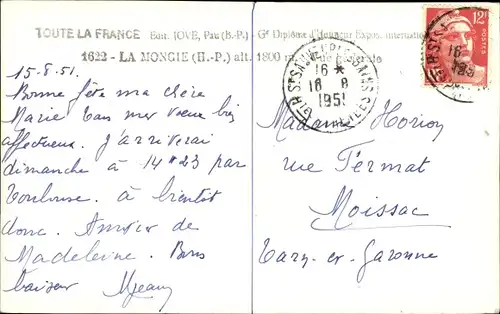 TOUTE LA FRANCE Edit. JOVE, Pau (B.-P.) Gd Diplôme d'Honneur Expos. internation
1622 - LA MONGIE (H.-P.) alt. 1800 m.
15.8.51.
Bonne fête ma chère
Marie tous mes vœux bien
affectueux. J'arriverai
dimanche à 14 H 23 par
Toulouse. à bientôt
donc. Amitiés de
Madeleine. Bons
baisers
16 *
16 8
1951
12F
POSTES
16
1951
Madame
rue Fermat
Moissac
Tarn-et-Garonne